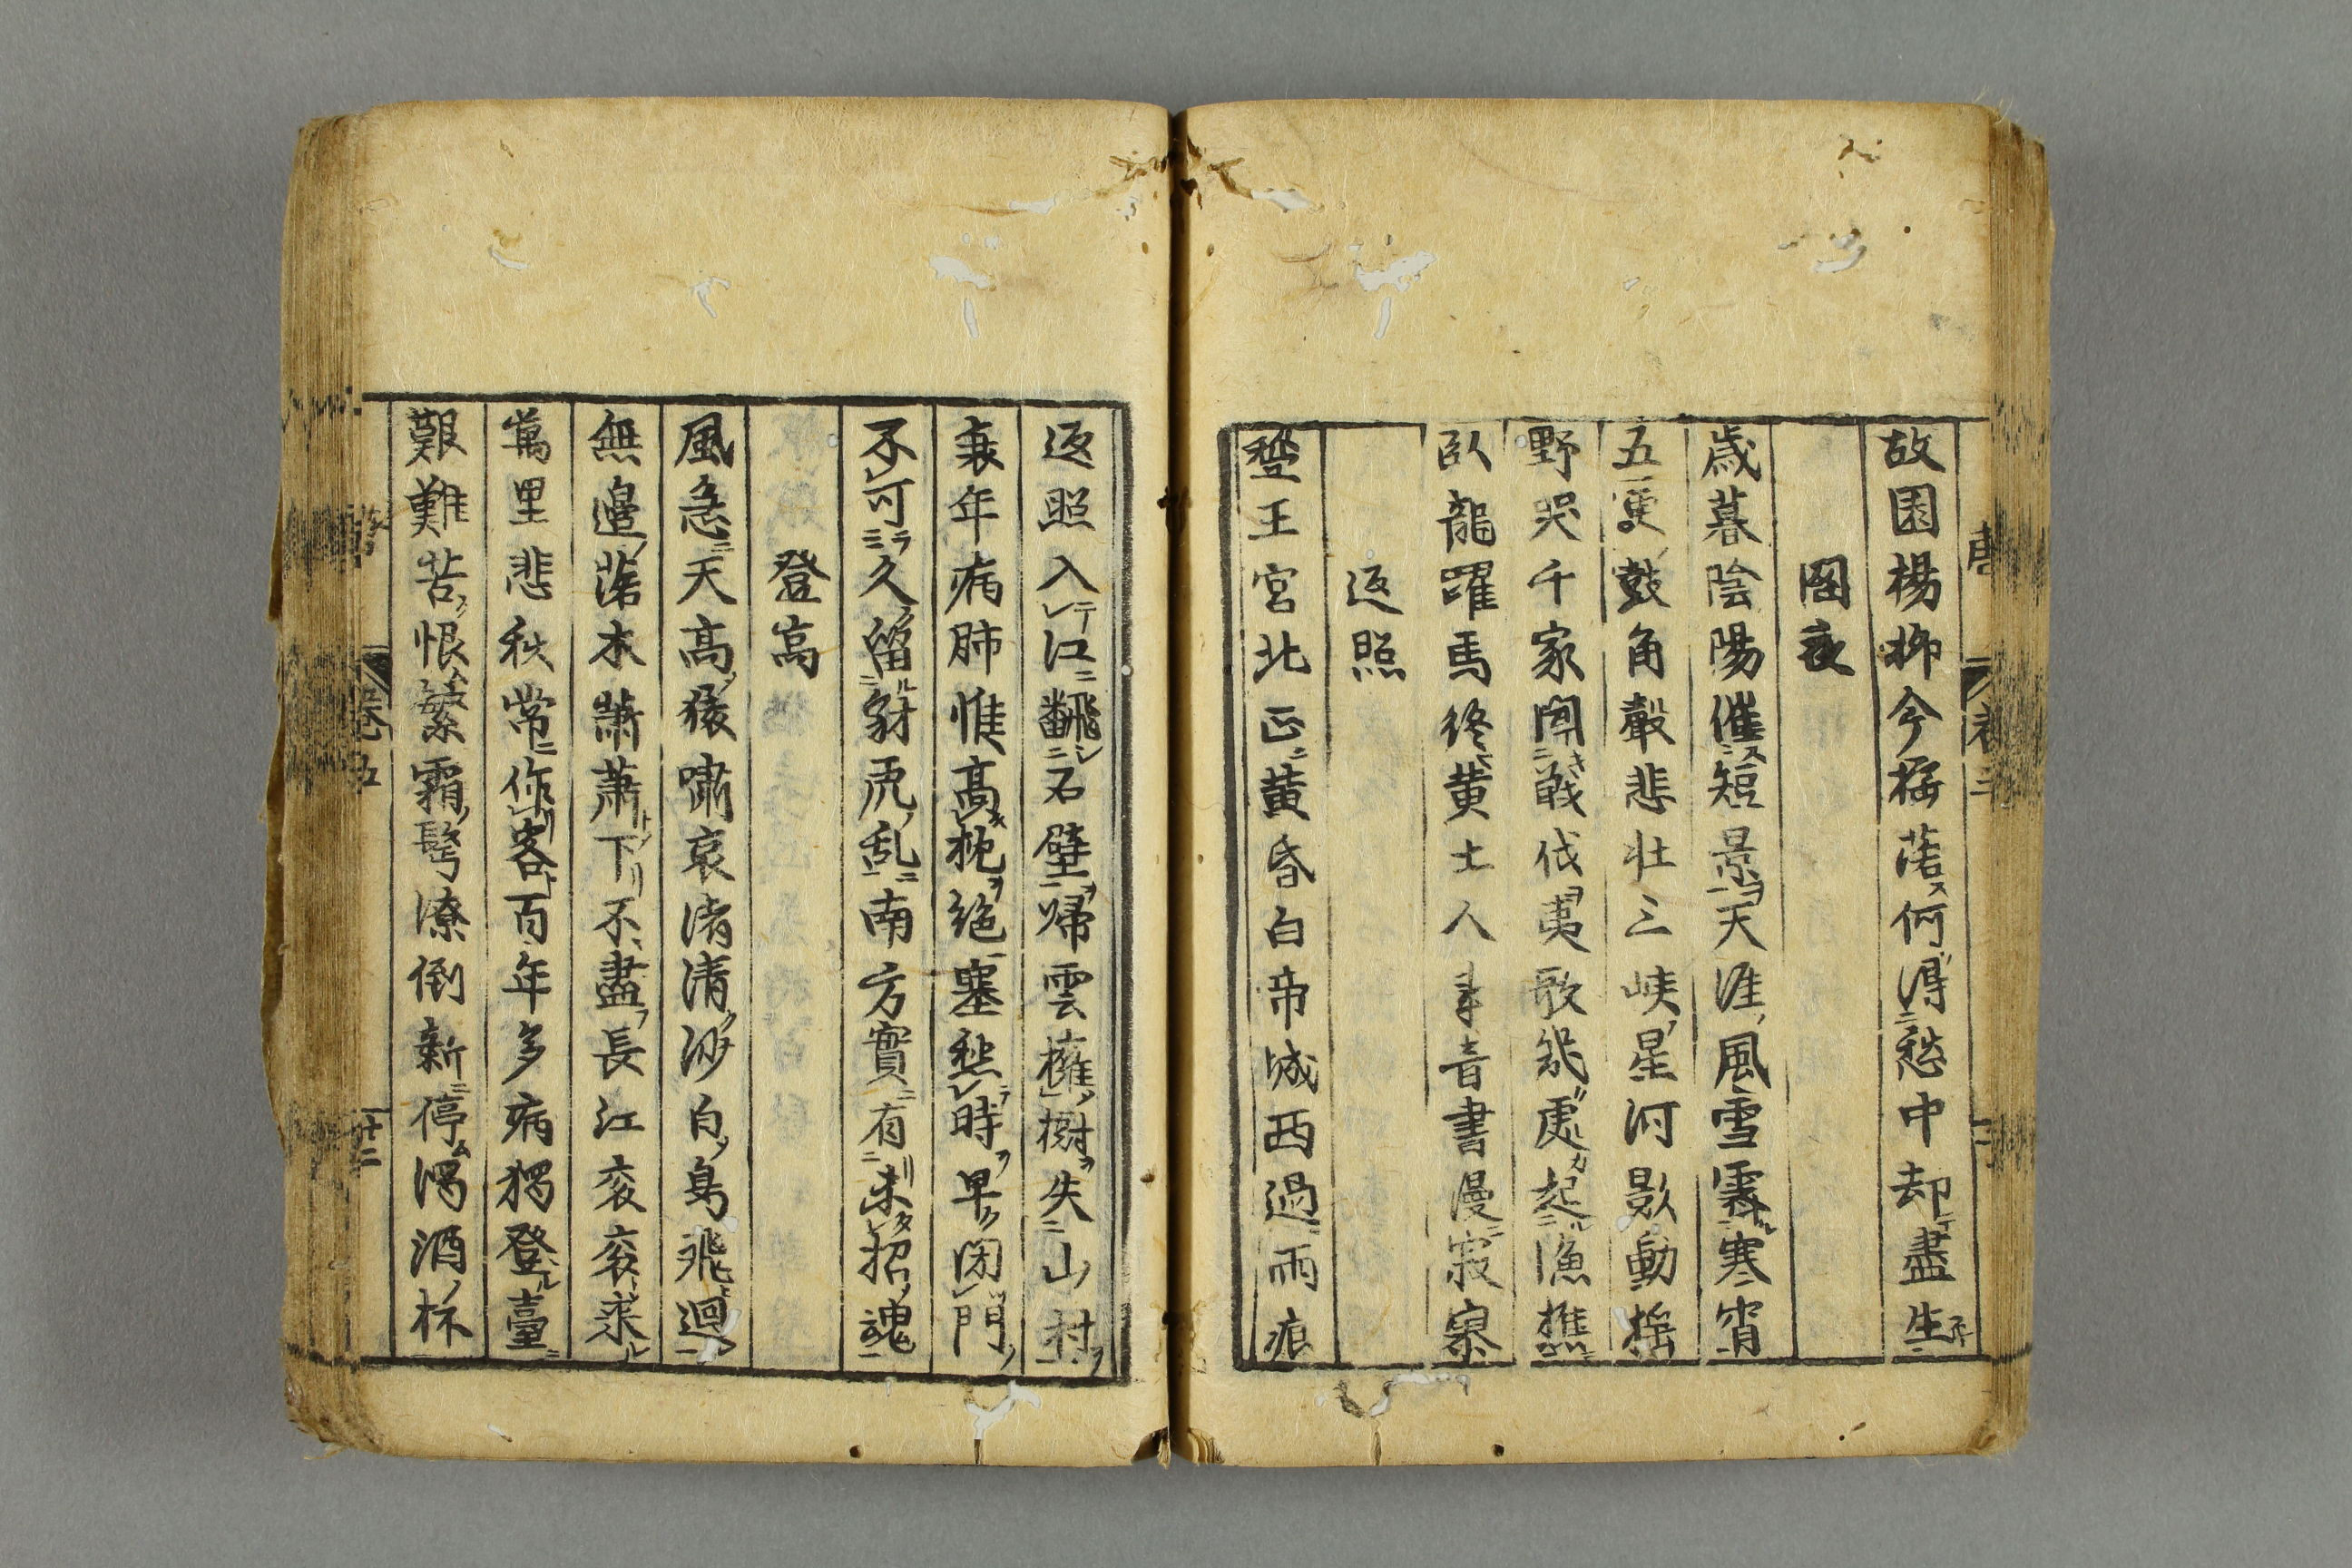 故園楊柳今搖落何得愁中却盡生
閣夜
歳暮陰陽催短景天涯風雪霽寒宵
五更鼓角聲悲壮三峡星河影動搖
野哭千家聞戦伐夷歌幾處起漁樵
臥龍躍馬終黄土人事音書漫寂寥
返照
楚王宮北正黄昏白帝城西過雨痕
返照入江飜石壁歸雲擁樹失山村
衰年病肺惟高枕絶塞愁時早閉門
不可久留豺虎乱南方實有未招魂
登高
風急天高猿嘯哀渚清沙白鳥飛迴
無邊落木蕭蕭下不盡長江衮衮來
萬里悲秋常作客百年多病獨登臺
艱難苦恨繁霜鬢潦倒新停濁酒杯
卷五
十二